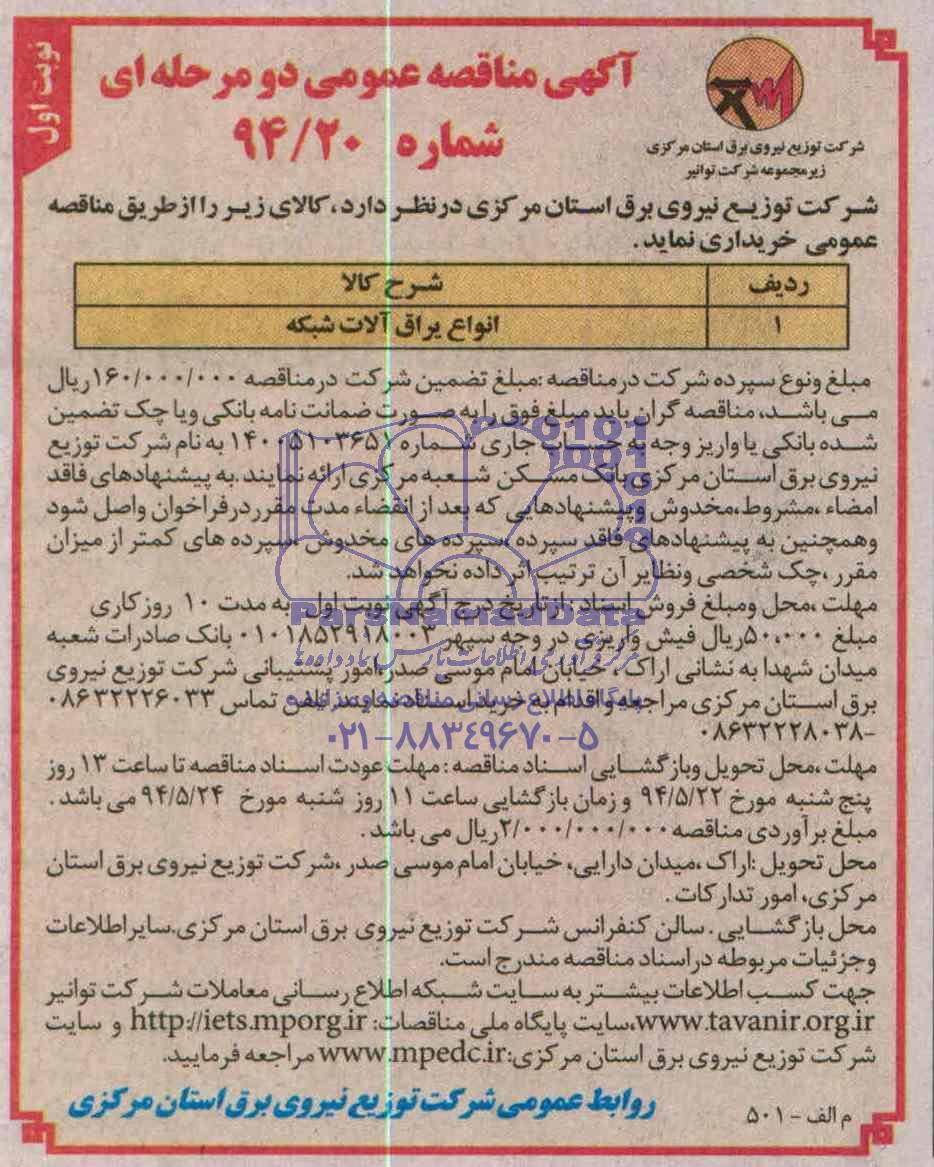 نوبت اول
آگهی مناقصه عمومی دو مرحله ای
شماره ۹۴/۲۰
شرکت توزیع نیروی برق استان مرکزی
زیرمجموعه شرکت توانیر
شرکت توزیع نیروی برق استان مرکزی درنظر دارد، کالای زیر را از طریق مناقصه
عمومی خریداری نماید.
ردیف شرح کالا
۱ انواع یراق آلات شبکه
مبلغ ونوع سپرده شرکت درمناقصه :مبلغ تضمین شرکت درمناقصه ۱۶۰/۰۰۰/۰۰۰ریال
می باشد، مناقصه گران باید مبلغ فوق را به صورت ضمانت نامه بانکی ویا چک تضمین
شده بانکی یا واریز وجه به حساب جاری شماره ۱۴۰۰۵۱۰۳۶۵۱ به نام شرکت توزیع
نیروی برق استان مرکزی بانک مسکن شعبه مرکزی ارائه نمایند.به پیشنهادهای فاقد
امضاء ،مشروط،مخدوش وپیشنهادهایی که بعد از انقضاء مدت مقرردرفراخوان واصل شود
وهمچنین به پیشنهادهای فاقد سپرده ،سپرده های مخدوش ،سپرده های کمتر از میزان
مقرر ،چک شخصی ونظایر آن ترتیب اثر داده نخواهد شد.
مهلت ،محل ومبلغ فروش اسناد : ازتاریخ درج آگهی نوبت اول به مدت ۱۰ روزکاری
مبلغ ۵۰,۰۰۰ریال فیش واریزی در وجه سپهر ۰۱۰۱۸۵۲۹۱۸۰۰۳ بانک صادرات شعبه
میدان شهدا به نشانی اراک ، خیابان امام موسی صدر،امور پشتیبانی شرکت توزیع نیروی
برق استان مرکزی مراجعه واقدام به خرید اسناد نمایند. تلفن تماس ۰۸۶۳۲۲۲۶۰۳۳
-۰۸۶۳۲۲۲۸۰۳۸
مهلت ،محل تحویل وبازگشایی اسناد مناقصه : مهلت عودت اسناد مناقصه تا ساعت ۱۳ روز
پنج شنبه مورخ ۹۴/۵/۲۲ و زمان بازگشایی ساعت ۱۱ روز شنبه مورخ ۹۴/۵/۲۴ می باشد .
مبلغ برآوردی مناقصه ۲/۰۰۰/۰۰۰/۰۰۰ریال می باشد .
محل تحویل :اراک ،میدان دارایی، خیابان امام موسی صدر ،شرکت توزیع نیروی برق استان
مرکزی، امور تدارکات .
محل بازگشایی . سالن کنفرانس شرکت توزیع نیروی برق استان مرکزی.سایراطلاعات
وجزئیات مربوطه دراسناد مناقصه مندرج است.
جهت کسب اطلاعات بیشتر به سایت شبکه اطلاع رسانی معاملات شرکت توانیر
www.tavanir.org.ir،سایت پایگاه ملی مناقصات: http://iets.mporg.ir و سایت
شرکت توزیع نیروی برق استان مرکزی:www.mpedc.ir مراجعه فرمایید.
روابط عمومی شرکت توزیع نیروی برق استان مرکزی
م الف - ۵۰۱
ParsNamadData
پایگاه اطلاع رسانی مناقصه و مزایده
۰۲۱-۸۸۳۴۹۶۷۰-۵